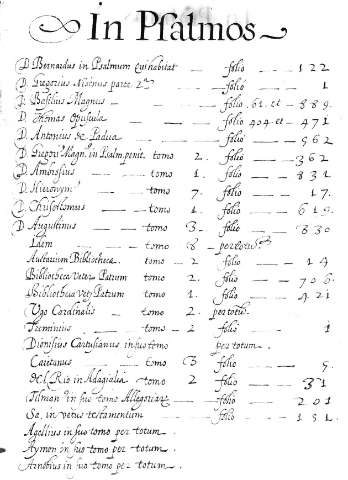 In Psalmos
D. Bernardus in Psalmum Qui habitat folio 122
D. Gregorius Nisenus parte 2. folio 1
D. Basilius Magnus folio 61. et 889.
D. Thomas Opuscula folio 404 et 471
D. Antonius de Padua folio 962
D. Gregori' Magn' in Psalm. penit. tomo 2. folio 362
D. Ambrosius tomo 1. folio 831
D. Hieronym' tomo 7. folio 17.
D. Chrisostomus tomo 1. folio 619.
D. Augustinus tomo 3. folio 830
Idem tomo 8 per totu
Auctarium Bibliothecæ tomo 2 folio 14
Bibliotheca Veter Patrum tomo 2 folio 706
Bibliotheca Vet. Patrum tomo 1. folio 421
Ugo Cardinalis tomo 2. per totum
tomo 2 folio 1
Dionisius Cartusianus in suo tomo per totum.
Caietanus tomo 3 folio 9.
del Rio in Adagialia tomo 2 folio 31
Tilman in suo tomo Allegoriar folio 201
Sa, in vetus testamentum folio 151.
Agellius in suo tomo per totum.
Aymon in suo tomo per totum.
Arnobius in suo tomo per totum.